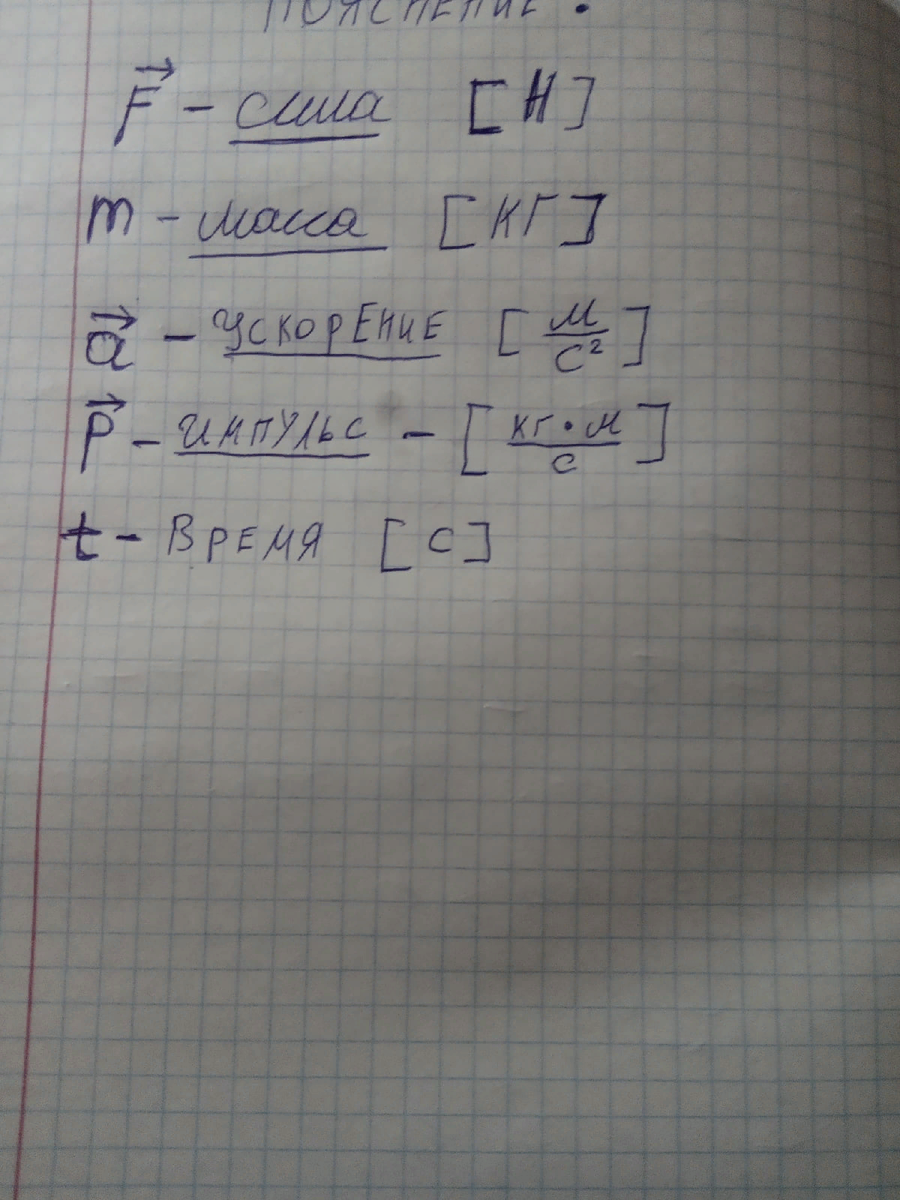 ПОЯСНЕНИЕ:
F⃗ – сила [Н]
m – масса [КГ]
a⃗ – УСКОРЕНИЕ [м/с²]
P⃗ – ИМПУЛЬС – [кг·м/с]
t – ВРЕМЯ [с]